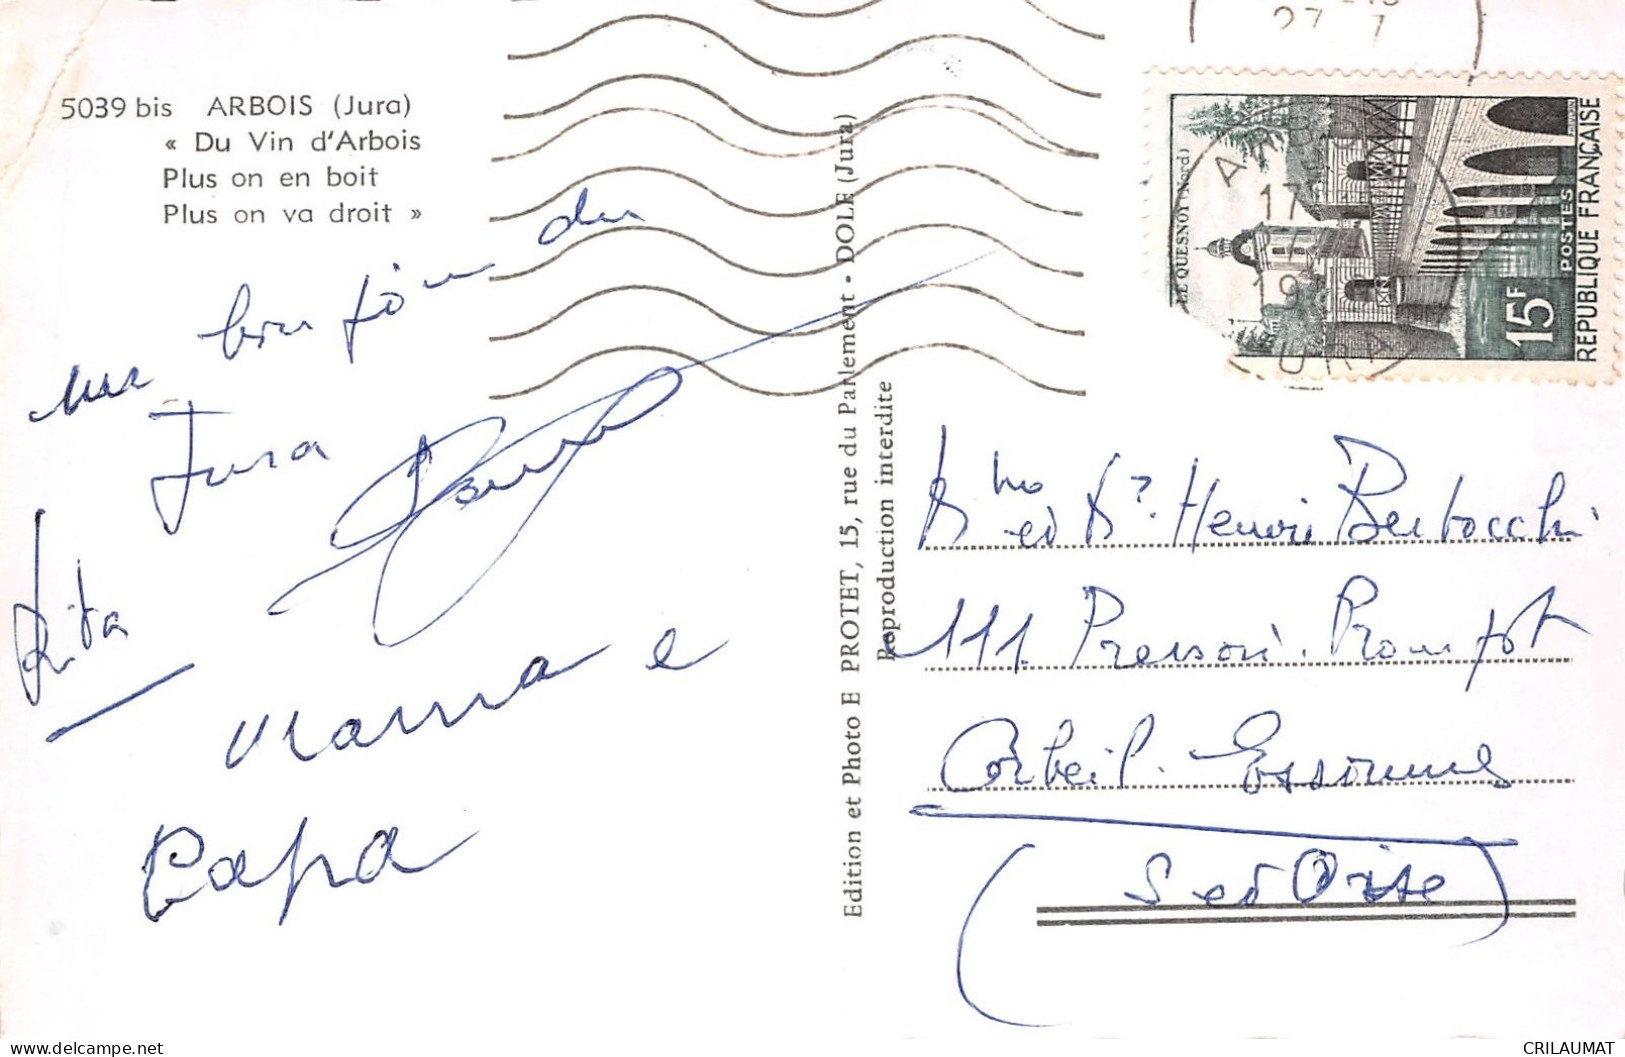 5039 bis ARBOIS (Jura)
« Du Vin d'Arbois
Plus on en boit
Plus on va droit »
du
Jura
Rita
Mama e
Papa
Edition et Photo E PROTET, 15, rue du Parlement - DOLE (Jura)
Reproduction interdite
27 7
LE QUESNOY (Nord)
15F
POSTES
REPUBLIQUE FRANÇAISE
17
JURA
Henri Bertocchi
111. Pressoir. Prompt
Corbeil. Essonnes
(S et Oise)
delcampe.net
CRILAUMAT